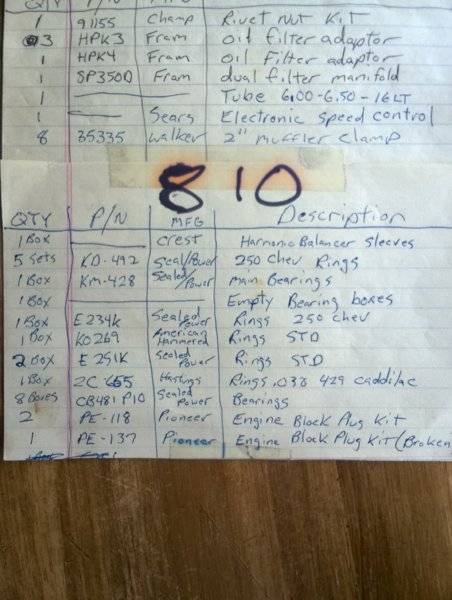 QTY P/N MFG
1 91155 Champ Rivet Nut Kit
3 HPK3 Fram oil filter adaptor
1 HPK4 Fram oil Filter adaptor
1 SP350D Fram dual filter manifold
1 Tube 6.00-6.50-16LT
1 Sears Electronic speed control
8 35335 Walker 2" muffler clamp
810
QTY P/N MFG Description
1 Box Crest Harmonic Balancer Sleeves
5 Sets KD-492 Seal/Power 250 Chev Rings
1 Box KM-428 Sealed/Power main Bearings
1 Box Empty Bearing boxes
1 Box E234K Sealed Power Rings 250 chev
1 Box KO269 American Hammered Rings STD
2 Box E251K Sealed Power Rings STD
1 Box 2C Hastings Rings .038 429 caddilac
8 Boxes CB481 P10 Sealed Power Bearings
2 PE-118 Pioneer Engine Block Plug Kit
1 PE-137 Pioneer Engine Block Plug Kit (Broken